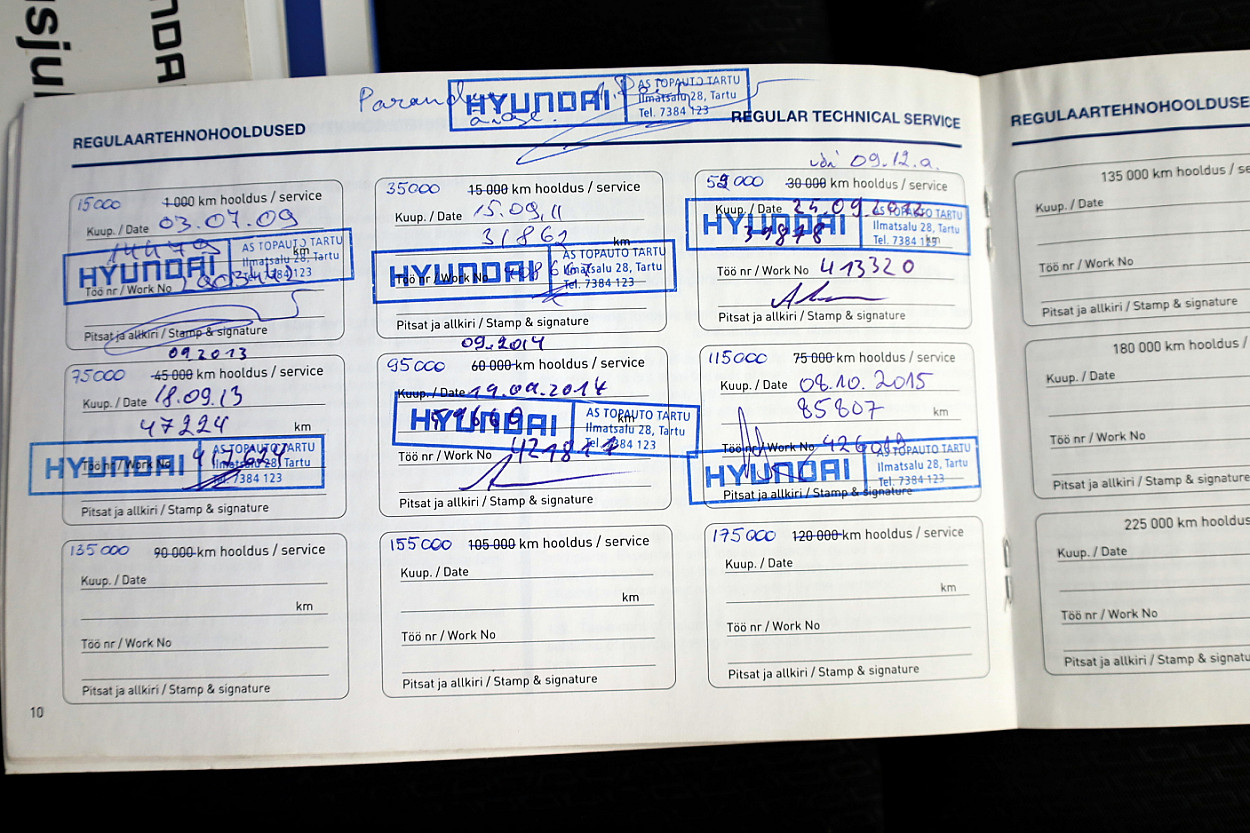 HYUNDAI
AS TOPAUTO TARTU
Ilmatsalu 28, Tartu
Tel. 7384 123
REGULAARTEHNOHOOLDUSED
REGULAR TECHNICAL SERVICE
09.12.a.
15000 1 000 km hooldus / service
Kuup. / Date 03.07.09
14479 km
HYUNDAI
AS TOPAUTO TARTU
Ilmatsalu 28, Tartu
Tel. 7384 123
Töö nr / Work No
Pitsat ja allkiri / Stamp & signature
35000 15 000 km hooldus / service
Kuup. / Date 15.09.11
31862 km
HYUNDAI
AS TOPAUTO TARTU
Ilmatsalu 28, Tartu
Tel. 7384 123
Töö nr / Work No
Pitsat ja allkiri / Stamp & signature
30 000 km hooldus / service
Kuup. / Date
39878 km
HYUNDAI
AS TOPAUTO TARTU
Ilmatsalu 28, Tartu
Tel. 7384 123
Töö nr / Work No 413320
Pitsat ja allkiri / Stamp & signature
09.2013
75000 45 000 km hooldus / service
Kuup. / Date 18.09.13
47224 km
HYUNDAI
AS TOPAUTO TARTU
Ilmatsalu 28, Tartu
Tel. 7384 123
Töö nr / Work No
Pitsat ja allkiri / Stamp & signature
09.2014
95000 60 000 km hooldus / service
Kuup. / Date 19.09.2014
km
HYUNDAI
AS TOPAUTO TARTU
Ilmatsalu 28, Tartu
Tel. 7384 123
Töö nr / Work No 421817
Pitsat ja allkiri / Stamp & signature
115000 75 000 km hooldus / service
Kuup. / Date 08.10.2015
85807 km
Töö nr / Work No
HYUNDAI
AS TOPAUTO TARTU
Ilmatsalu 28, Tartu
Tel. 7384 123
Pitsat ja allkiri / Stamp & signature
135000 90 000 km hooldus / service
Kuup. / Date
km
Töö nr / Work No
Pitsat ja allkiri / Stamp & signature
155000 105 000 km hooldus / service
Kuup. / Date
km
Töö nr / Work No
Pitsat ja allkiri / Stamp & signature
175000 120 000 km hooldus / service
Kuup. / Date
km
Töö nr / Work No
Pitsat ja allkiri / Stamp & signature
10
REGULAARTEHNOHOOLDUSE
135 000 km hooldus
Kuup. / Date
Töö nr / Work No
Pitsat ja allkiri / Stamp & signature
180 000 km hooldus /
Kuup. / Date
Töö nr / Work No
Pitsat ja allkiri / Stamp & signat
225 000 km hooldus
Kuup. / Date
Töö nr / Work No
Pitsat ja allkiri / Stamp & signatu